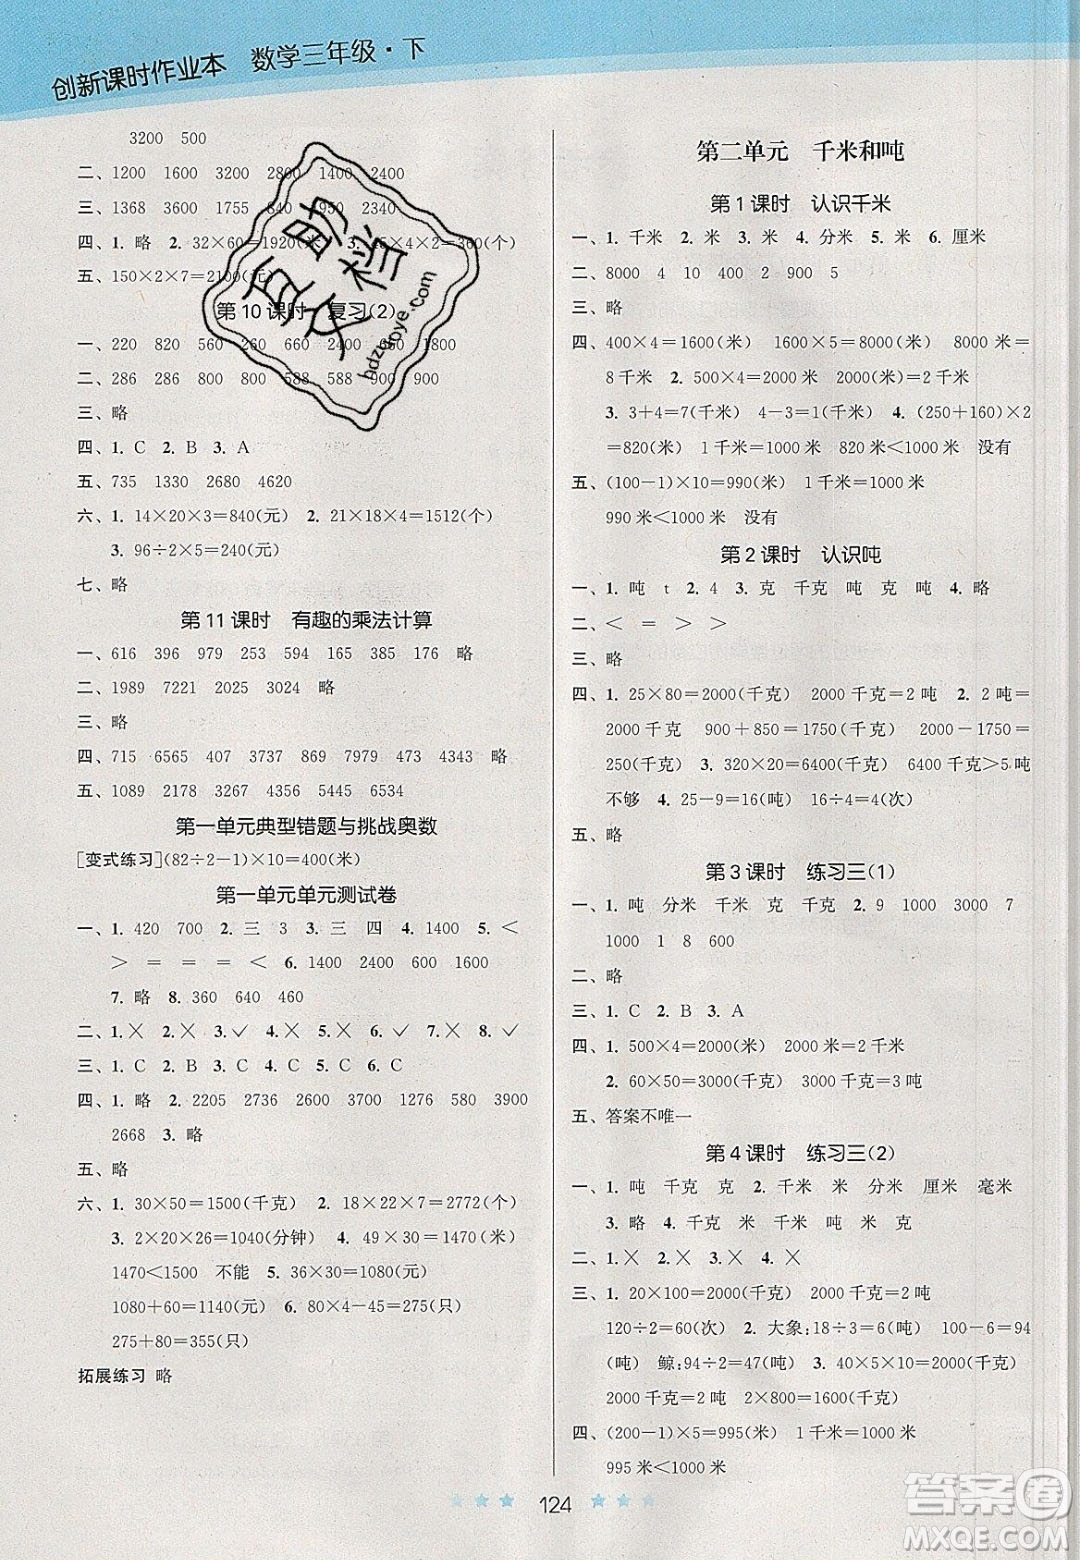 创新课时作业本 数学三年级·下
3200 500
二、1200 1600 1500 2800 1400 2400
三、1368 3600 1755 840 1950 2340
四、1. 略 2. 32×60=1920(米) 3. ×4×2=360(个)
五、150×2×7=2100(元)
第10课时 复习(2)
一、220 820 560 260 660 2400 1800
二、286 286 800 800 588 588 900 900
三、略
四、1. C 2. B 3. A
五、735 1330 2680 4620
六、1. 14×20×3=840(元) 2. 21×18×4=1512(个)
3. 96÷2×5=240(元)
七、略
第11课时 有趣的乘法计算
一、616 396 979 253 594 165 385 176 略
二、1989 7221 2025 3024 略
三、略
四、715 6565 407 3737 909 7979 4433 略
五、1089 2178 3267 4356 5445 6534
第一单元典型错题与挑战奥数
[变式练习](82÷2-1)×10=400(米)
第一单元单元测试卷
一、1. 420 700 2. 三 3 3. 三 四 4. 1400 5. <
> = = = < 6. 1400 2400 600 1600
7. 略 8. 360 640 460
二、1.╳ 2.╳ 3.✓ 4.╳ 5.╳ 6.✓ 7.╳ 8.✓
三、1. C 2. B 3. B 4. C 5. C 6. C
四、1. 略 2. 2205 2736 3534 6750 2580 3900
2668 3. 略
五、略
六、1. 30×50=1500(千克) 2. 18×22×7=2772(个)
3. 2×20×26=1040(分钟) 4. 49×30=1470(米)
1470<1500 不能 5. 36×30=1080(元)
1080+60=1140(元) 6. 80×4-45=275(只)
275+80=355(只)
拓展练习 略
第二单元 千米和吨
第1课时 认识千米
一、1. 千米 2. 米 3. 米 4. 分米 5. 米 6. 厘米
二、8000 4 10 400 2 900 5
三、略
四、400×4=1600(米) 1600×5=8000(米) 8000米=
8千米 2. 500×4=2000(米) 2000(米)=2千米
3. 3+4=7(千米) 4-3=1(千米) 4. (250+160)×2
=820(米) 1千米=1000米 820米<1000米 没有
五、(100-1)×10=990(米) 1千米=1000米
990米<1000米 没有
第2课时 认识吨
一、1. 吨 t 2. 4 3. 克 千克 吨 克 吨 4. 略
二、< = > >
三、略
四、1. 25×80=2000(千克) 2000千克=2吨 2. 2吨=
2000千克 900+850=1750(千克) 2000-1750=
250(千克) 3. 320×20=6400(千克) 6400千克>5吨
不够 4. 25-9=16(吨) 16÷4=4(次)
五、略
第3课时 练习三(1)
一、1. 吨 分米 千米 克 千克 2. 9 1000 3000 7
1000 1 8 600
二、略
三、1. C 2. B 3. A
四、1. 500×4=2000(米) 2000米=2(千米)
2. 60×50=3000(千克) 3000(千克)=3吨
五、答案不唯一
第4课时 练习三(2)
一、1. 吨 千克 克 2. 千米 米 分米 厘米 毫米
3. 略 4. 千克 米 千米 吨 米 克
二、1.╳ 2.╳ 3.╳ 4.╳
三、1. 20×100=2000(千克) 2000千克=2吨
120÷2=60(次) 2. 大象:18÷3=6(吨) 100-6=94
(吨) 鲸:94÷2=47(吨) 3. 40×5×10=2000(千克)
2000千克=2吨 2×800=1600(千克)
四、(200-1)×5=995(米) 1千米=1000米
995米<1000米
124
互助文档
hdzuoye.com
答案圈
MXQE.COM